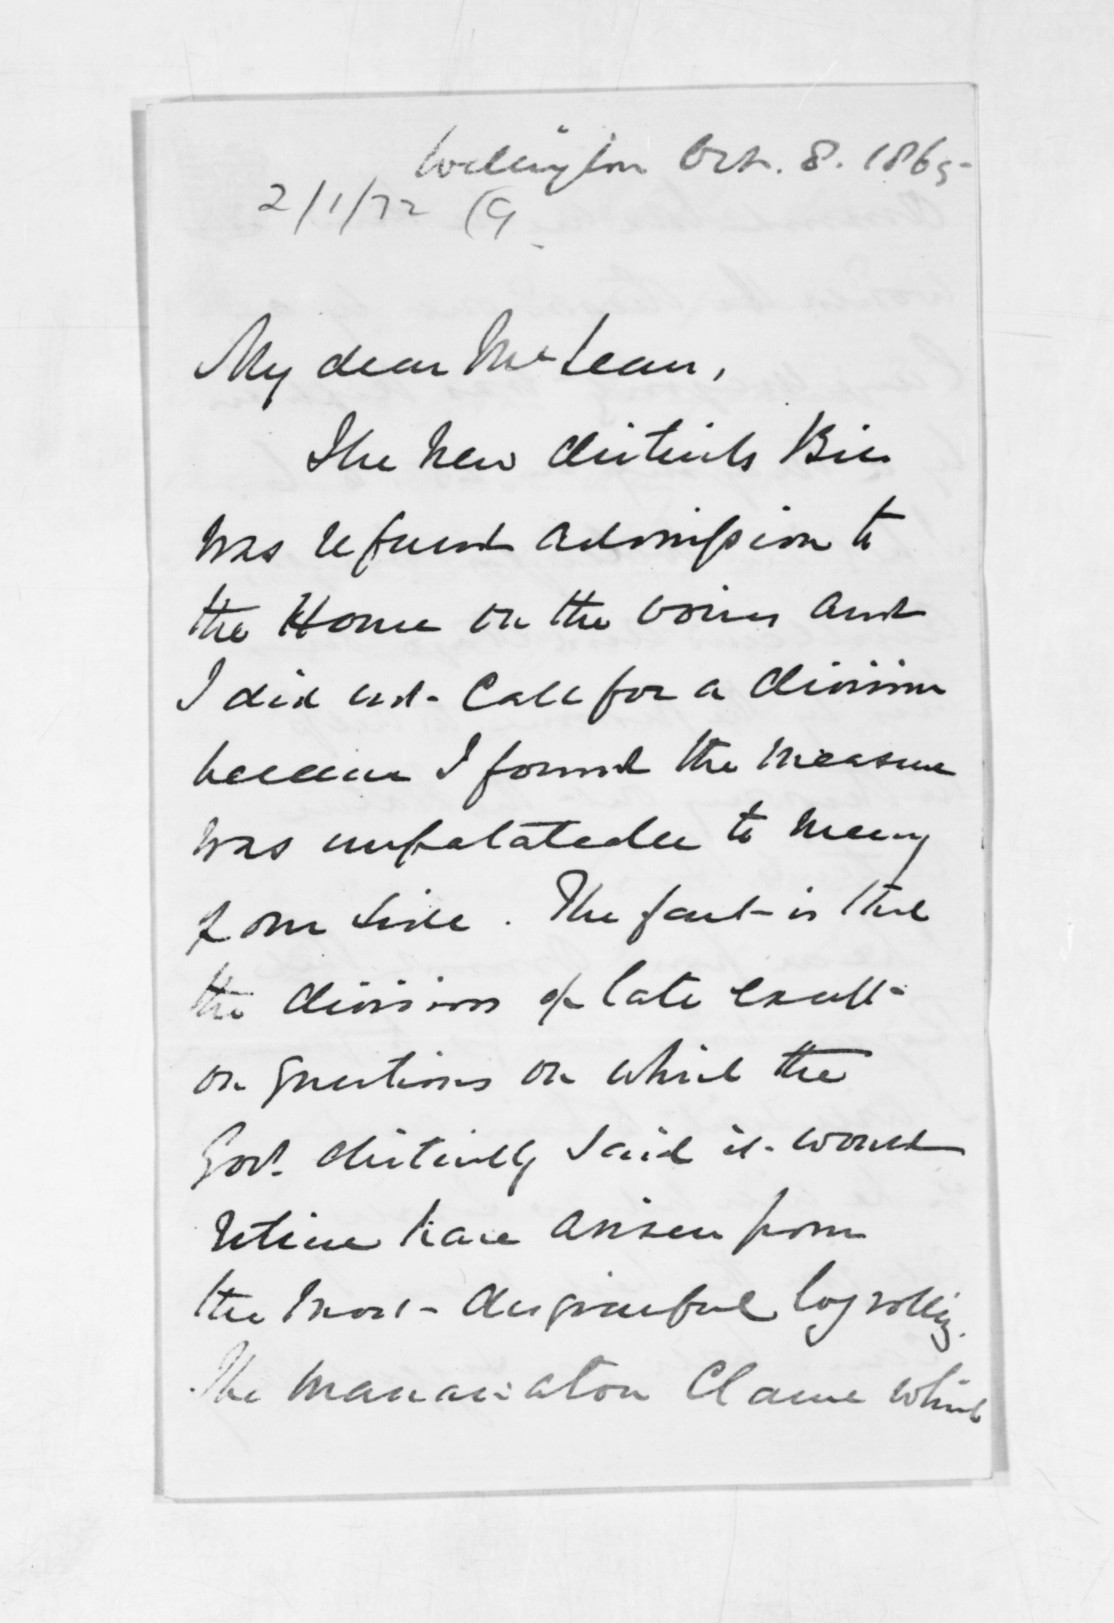 Wellington Oct. 8. 1865
2/1/72 (9
My dear McLean,
The New districts Bill
was refused admission to
the House on the voices and
I did not call for a division
because I found the measure
was unpalatable to many
of our side. The fact is that
the divisions of late
on questions on which the
Govt. distinctly said it would
retire have arisen from
the most disgraceful logrolling.
The Manawatu Clause which